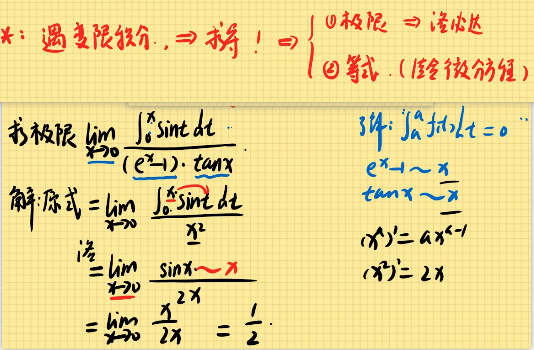 *: 遇变限积分, ⇒ 求导! ⇒ { ①极限 ⇒ 洛必达
②等式. (结合微分方程)
求极限 lim x→0 ∫₀ˣ sint dt / (eˣ-1)·tanx.
解:原式 = lim x→0 ∫₀ˣ sint dt / x²
洛 = lim x→0 sinx~x / 2x
= lim x→0 x / 2x = 1/2.
∫ₐᵃ f(t)dt = 0
eˣ-1 ~ x
tanx ~ x
(xᵃ)' = axᵃ⁻¹
(x²)' = 2x